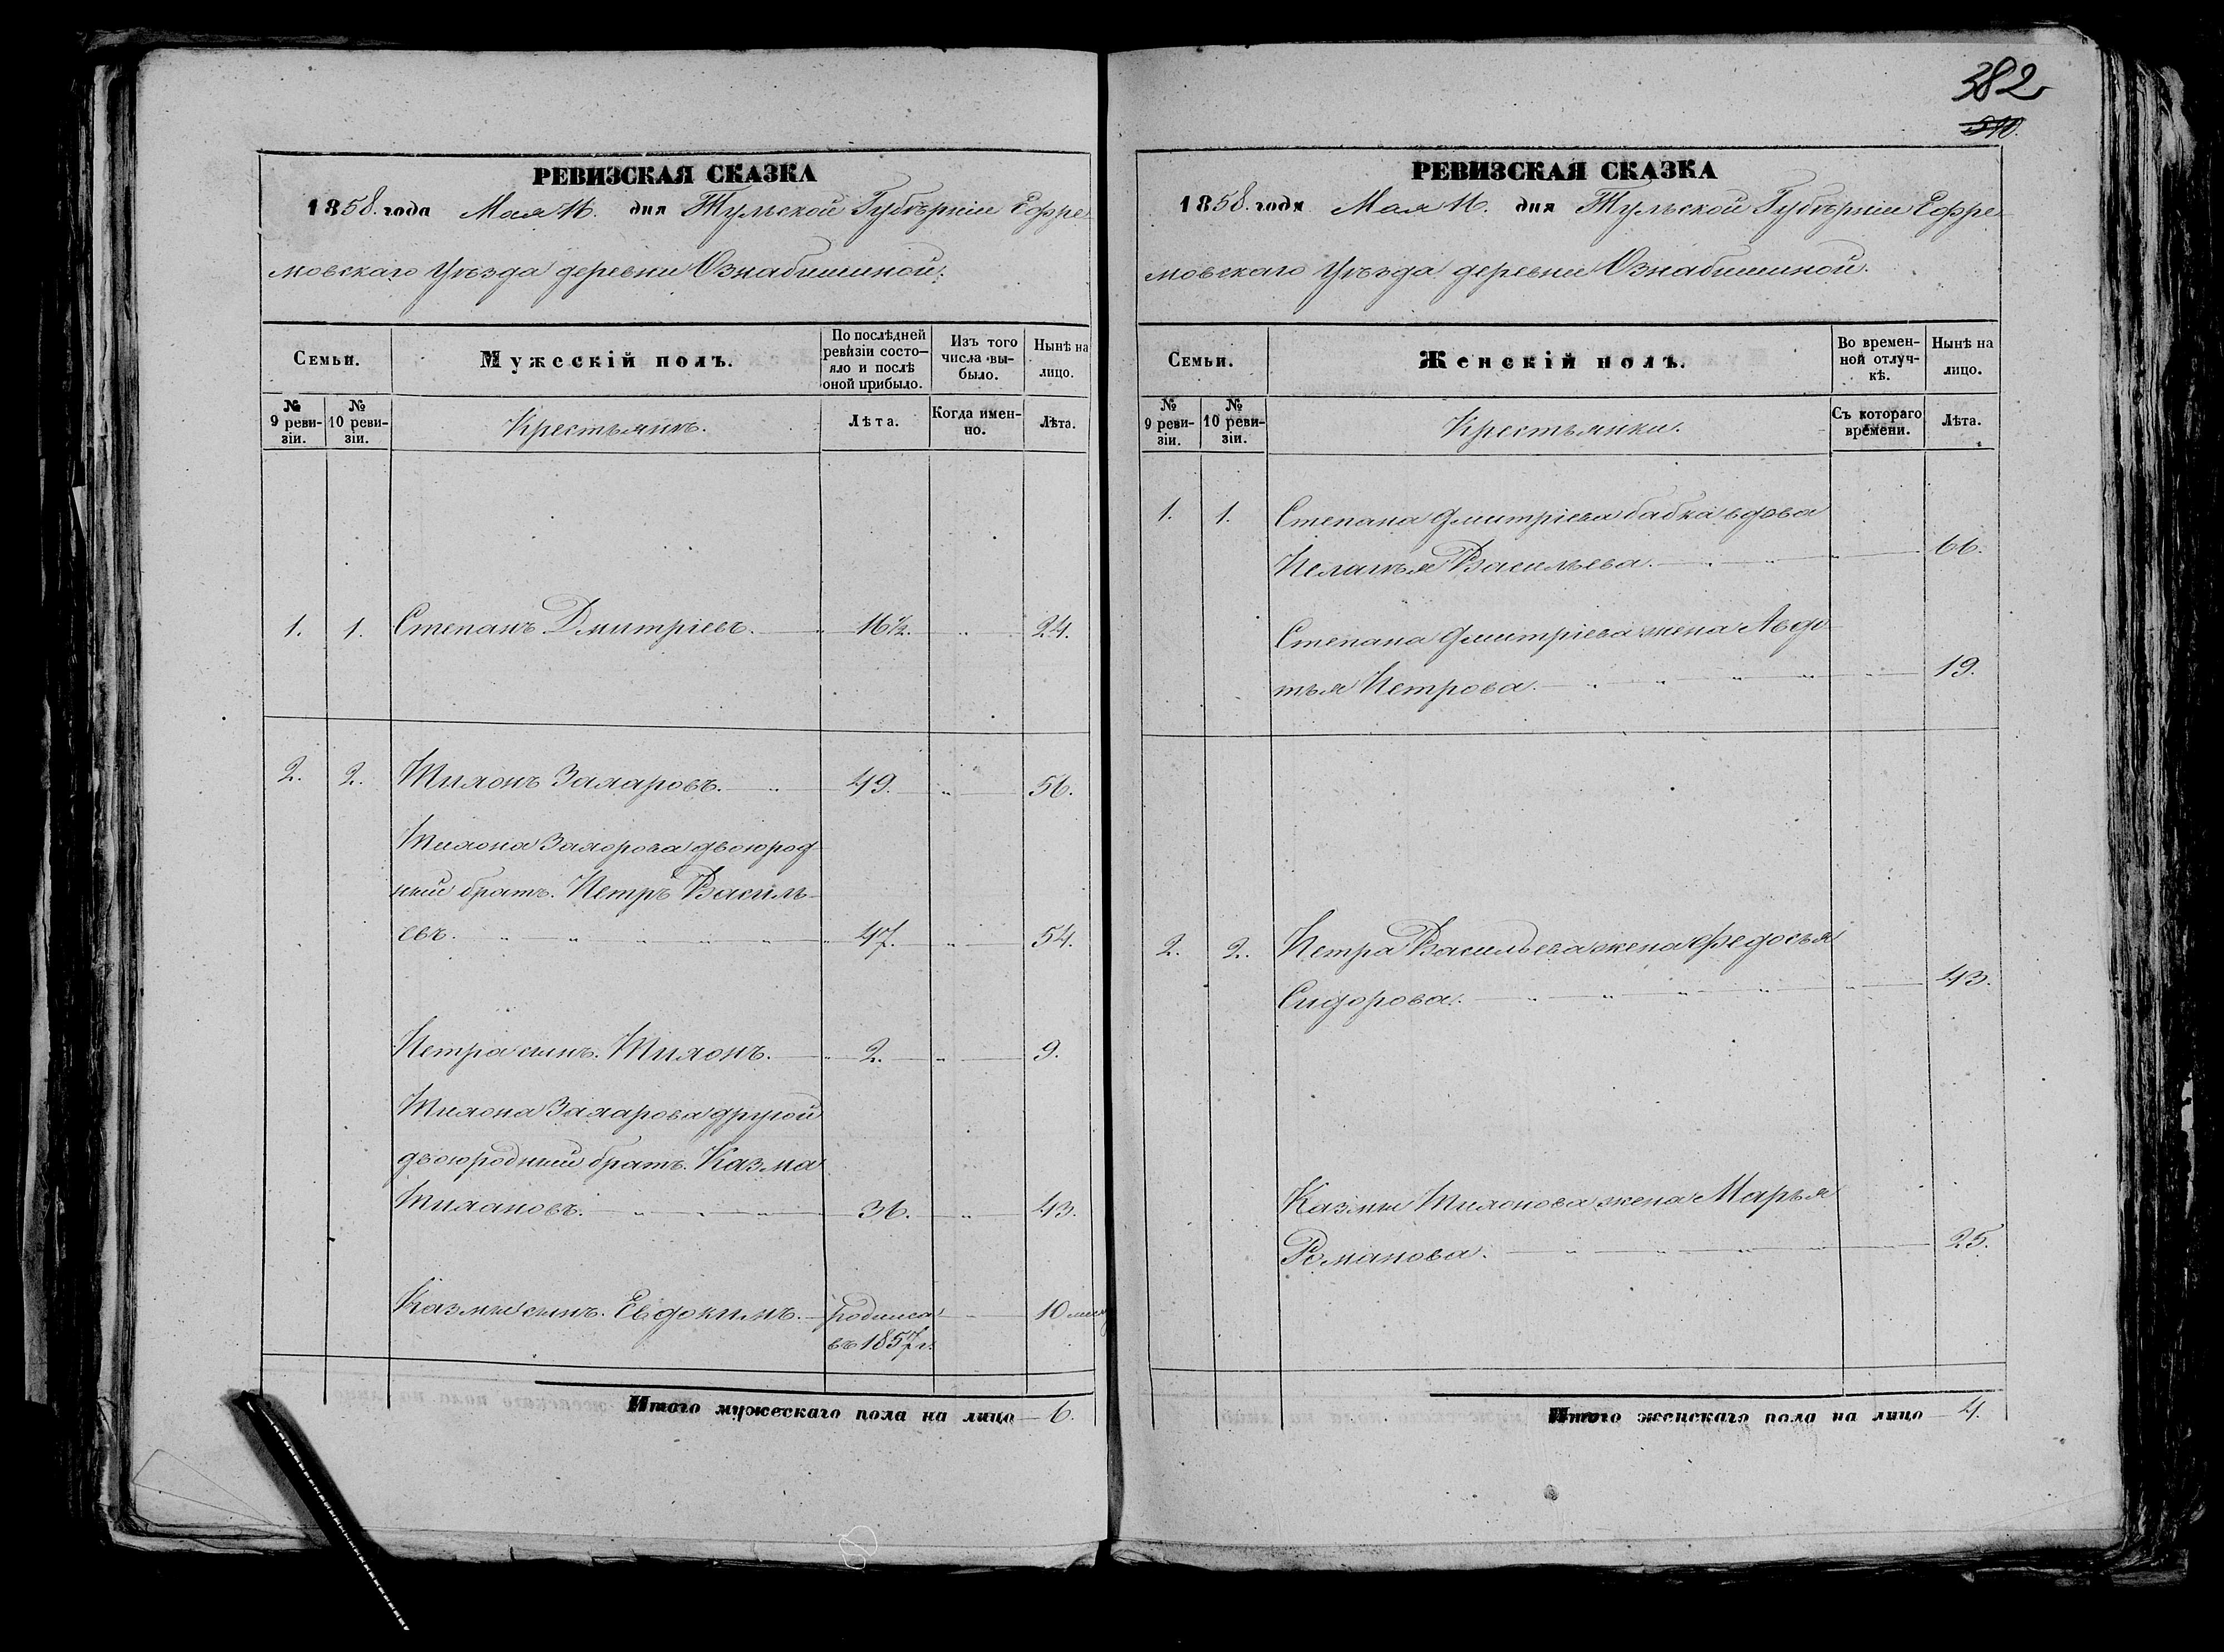 382
510.
РЕВИЗСКАЯ СКАЗКА
1858. года Мая 16. дня Тульской Губѣрніи Ефре
мовскаго Уѣзда деревни Ознабишиной.
Семьи.
Мужескій полъ.
По послѣдней ревизіи состо- яло и послѣ оной прибыло.
Изъ того числа вы- было.
Нынѣ на лицо.
№ 9 реви- зіи.
№ 10 реви- зіи.
Крестьянѣ.
Лѣта.
Когда имен- но.
Лѣта.
1. 1. Степанъ Дмитріевъ. 16½. 24.
2. 2. Тихонъ Захаровъ. 49. 56.
Тихона Захорова двоюрод
ний братъ. Петръ Василь-
евъ. 47. 54.
Петра сынъ. Тихонъ. 2. 9.
Тихона Захарова другой
двоюродний братъ. Казма
Тихановъ. 36. 43.
Казмы сынъ. Евдокимъ. родился 10 мес
въ 1857 г.
Итого мужескаго пола на лицо 6.
РЕВИЗСКАЯ СКАЗКА
1858. года Мая 16. дня Тульской Губѣрніи Ефре
мовскаго Уѣзда деревни Ознабишиной.
Семьи.
Женскій полъ.
Во времен- ной отлуч- кѣ.
Нынѣ на лицо.
№ 9 реви- зіи.
№ 10 реви- зіи.
Крестьянки.
Съ котораго времени.
Лѣта.
1. 1. Степана Дмитріева бабка вдова
Пелагья Васильева. 66.
Степана Дмитріева жена Авдо
тья Петрова. 19.
2. 2. Петра Васильева жена Федосья
Сидорова. 43.
Казмы Тихонова жена Марья
Романова. 25.
Итого женскаго пола на лицо 4.